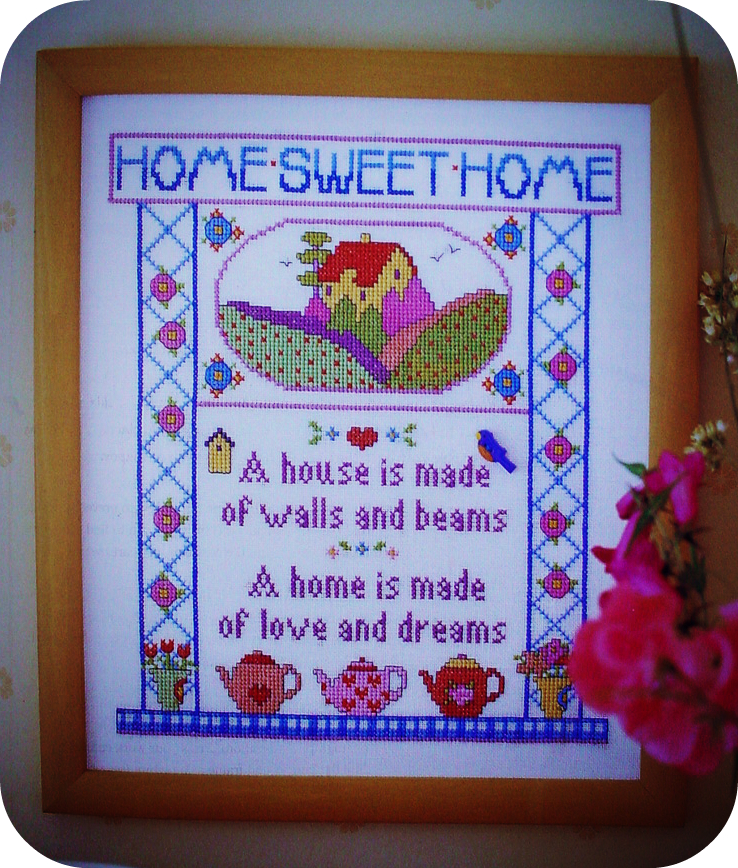 HOME·SWEET·HOME
A house is made
of walls and beams
A home is made
of love and dreams